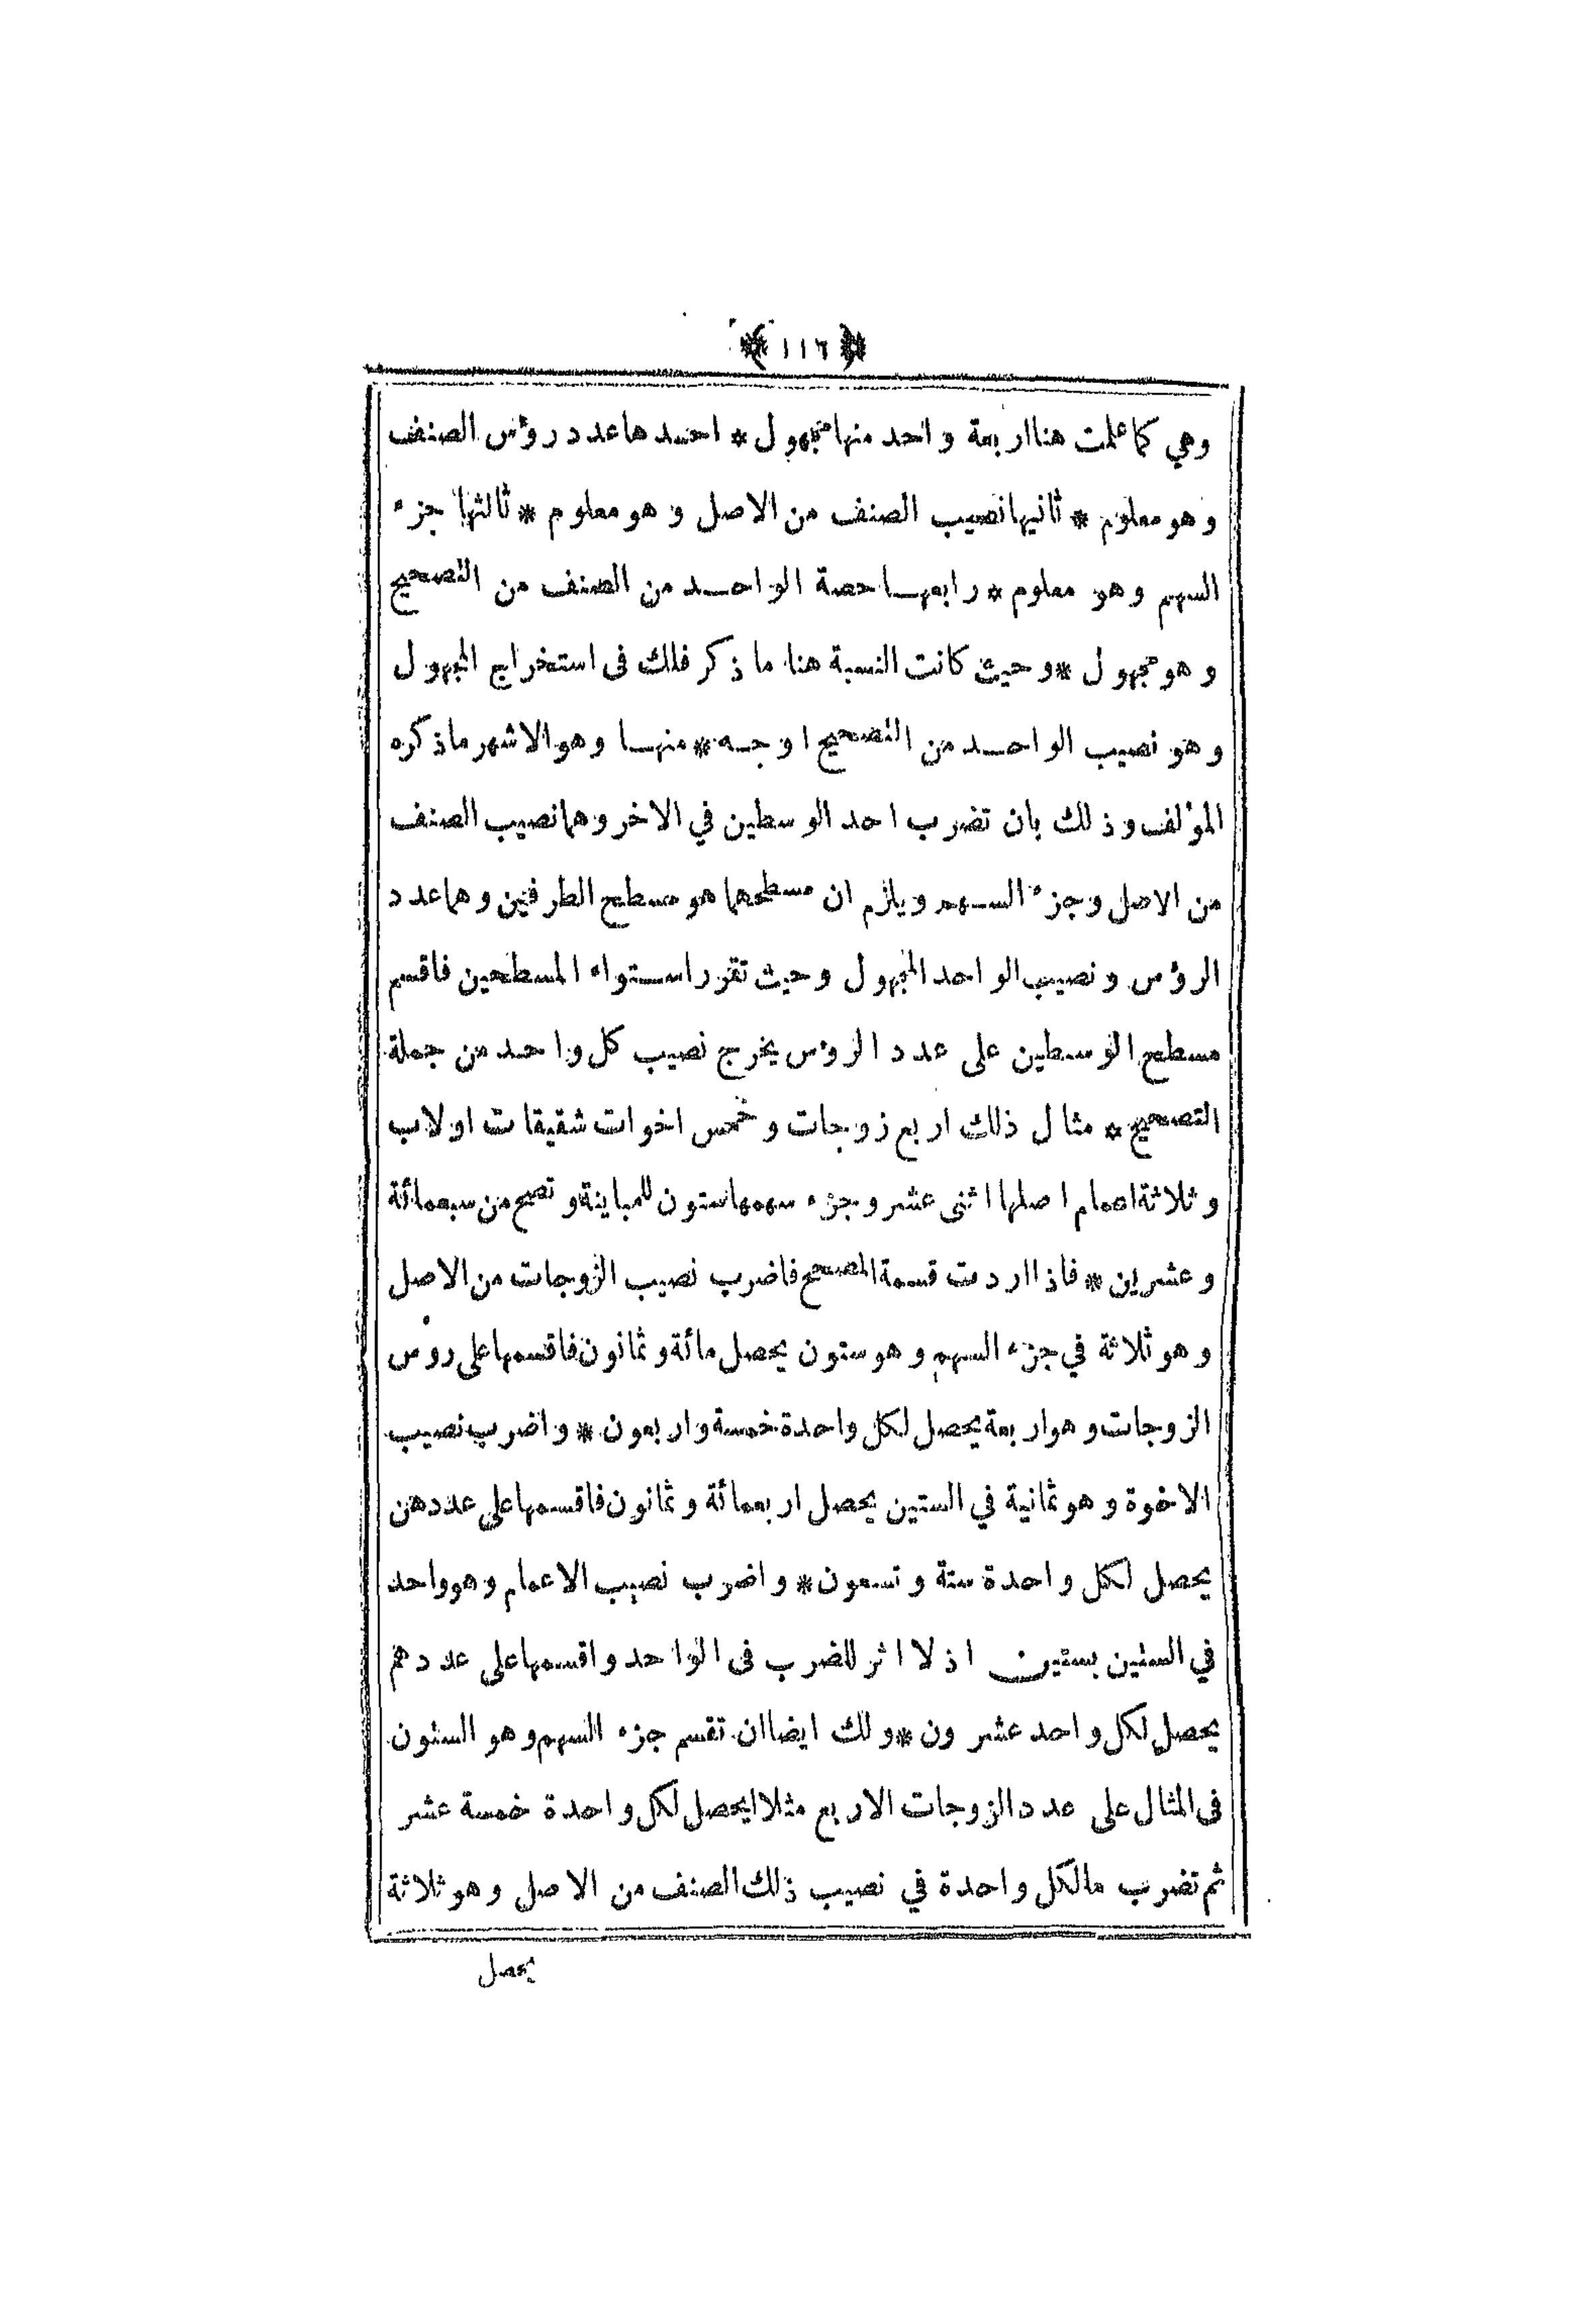 ﴿١١٦﴾
وهي كما علمت هنا اربعة واحد منها مجهول * احدها عدد رؤس الصنف
وهو معلوم * ثانيها نصيب الصنف من الاصل وهو معلوم * ثالثها جزء
السهم وهو معلوم * رابعها حصة الواحد من الصنف من التصحيح
وهو مجهول * وحيث كانت النسبة هنا ما ذكر فلك فى استخراج المجهول
وهو نصيب الواحد من التصحيح اوجه * منها وهو الاشهر ماذكره
المؤلف وذلك بان تضرب احد الوسطين في الاخر وهما نصيب الصنف
من الاصل وجزء السهم ويلزم ان مسطحهما هو مسطح الطرفين وهما عدد
الرؤس ونصيب الواحد المجهول وحيث تقرر استواء المسطحين فاقسم
مسطح الوسطين على عدد الرؤس يخرج نصيب كل واحد من جملة
التصحيح * مثال ذلك اربع زوجات وخمس اخوات شقيقات اولاب
وثلاثة اعمام اصلها اثنى عشر وجزء سهمها ستون للمباينة وتصح من سبعمائة
وعشرين * فاذا اردت قسمة المصحح فاضرب نصيب الزوجات من الاصل
وهو ثلاثة في جزء السهم وهو ستون يحصل مائة وثمانون فاقسمها على روس
الزوجات وهو اربعة يحصل لكل واحدة خمسة واربعون * واضرب نصيب
الاخوة وهو ثمانية في الستين يحصل اربعمائة وثمانون فاقسمها على عددهن
يحصل لكل واحدة ستة وتسعون * واضرب نصيب الاعمام وهو واحد
في الستين بستين اذ لا اثر للضرب فى الواحد واقسمها على عددهم
يحصل لكل واحد عشرون * ولك ايضا ان تقسم جزء السهم وهو الستون
فى المثال على عدد الزوجات الاربع مثلا ايحصل لكل واحدة خمسة عشر
ثم تضرب مالكل واحدة في نصيب ذلك الصنف من الاصل وهو ثلاثة
يحصل